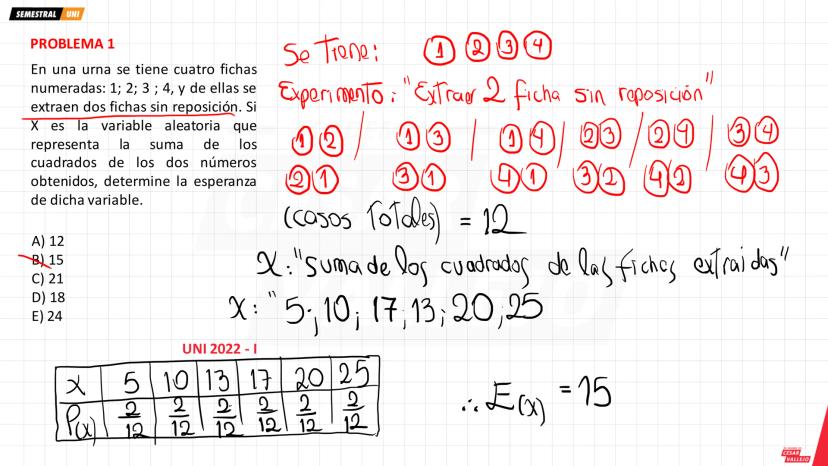 SEMESTRAL UNI
PROBLEMA 1
En una urna se tiene cuatro fichas
numeradas: 1; 2; 3 ; 4, y de ellas se
extraen dos fichas sin reposición. Si
X es la variable aleatoria que
representa la suma de los
cuadrados de los dos números
obtenidos, determine la esperanza
de dicha variable.
A) 12
B) 15
C) 21
D) 18
E) 24
UNI 2022 - I
Se tiene: 1 2 3 4
Experimento: "Extraer 2 ficha sin reposición"
1 2 / 1 3 / 1 4 / 2 3 / 2 4 / 3 4
2 1 3 1 4 1 3 2 4 2 4 3
(casos Totales) = 12
X: "suma de los cuadrados de las fichas extraidas"
X: " 5; 10; 17; 13; 20, 25
X 5 10 13 17 20 25
P(x) 2/12 2/12 2/12 2/12 2/12 2/12
∴ E(x) = 15
CESAR
VALLEJO